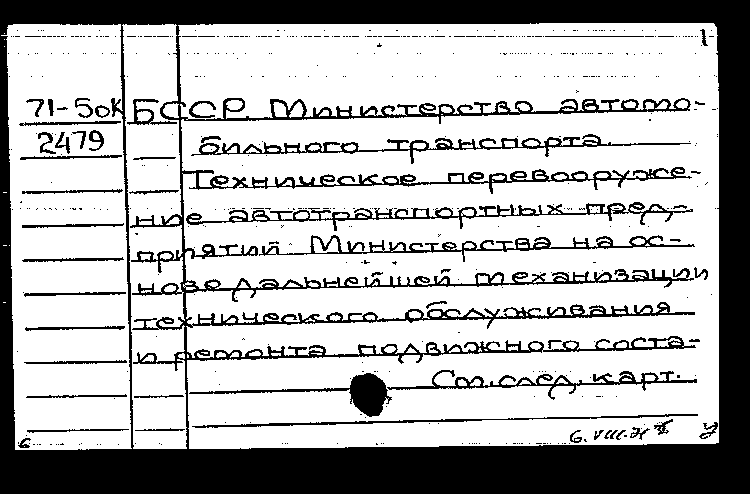 1
71-5ок БССР. Министерство автомо-
2479 бильного транспорта.
Техническое перевооруже-
ние автотранспортных пред-
приятий Министерства на ос-
нове дальнейшей механизации
технического обслуживания
и ремонта подвижного соста-
См. след. карт.
6 6.VIII.71 У